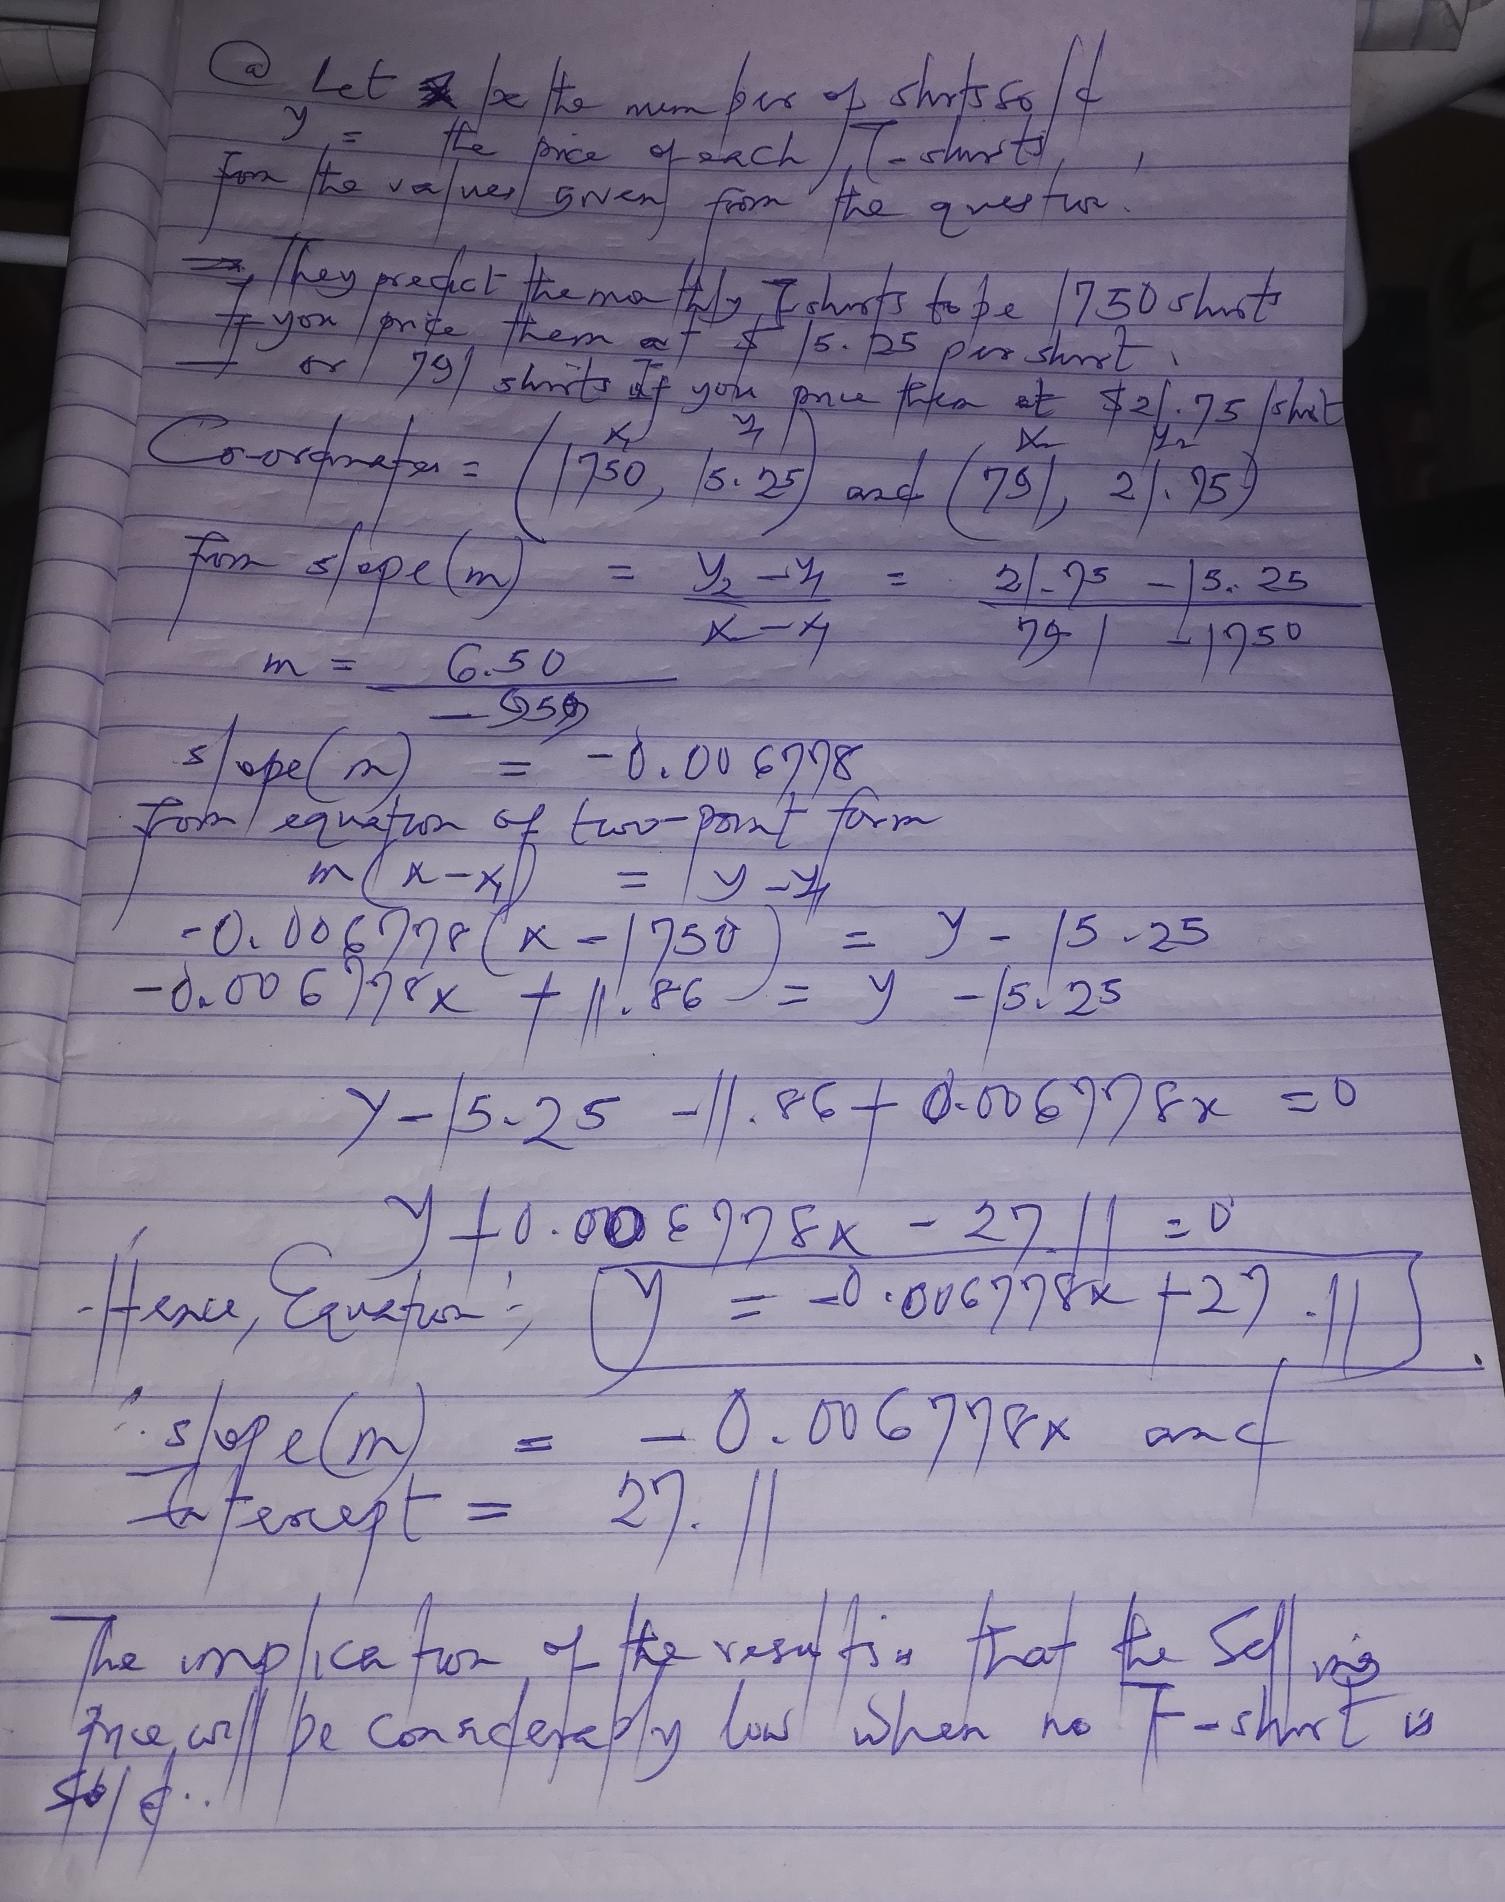 (a) Let x be the number of shirts sold
y = the price of each T-shirts,
from the values given from the question.
⇒ They predict the monthly T shirts to be 1750 shirts
If you price them at $ 15.25 per shirt.
→ or 791 shirts if you price them at $21.75/shirt
x₁ y₁ x₂ y₂
Co-ordinates = (1750, 15.25) and (791, 21.75)
from slope(m) = y₂ - y₁ / x - x₁ = 21.75 - 15.25 / 791 - 1750
m = 6.50 / -959
slope(m) = -0.006778
from equation of two-point form
m(x - x₁) = y - y₁
-0.006778(x - 1750) = y - 15.25
-0.006778x + 11.86 = y - 15.25
y - 15.25 - 11.86 + 0.006778x = 0
y + 0.006778x - 27.11 = 0
Hence, Equation; y = -0.006778x + 27.11
∴ slope(m) = -0.006778x and
Intercept = 27.11
The implication of the result is that the Selling
Price will be considerably low when no T-shirt is
sold..